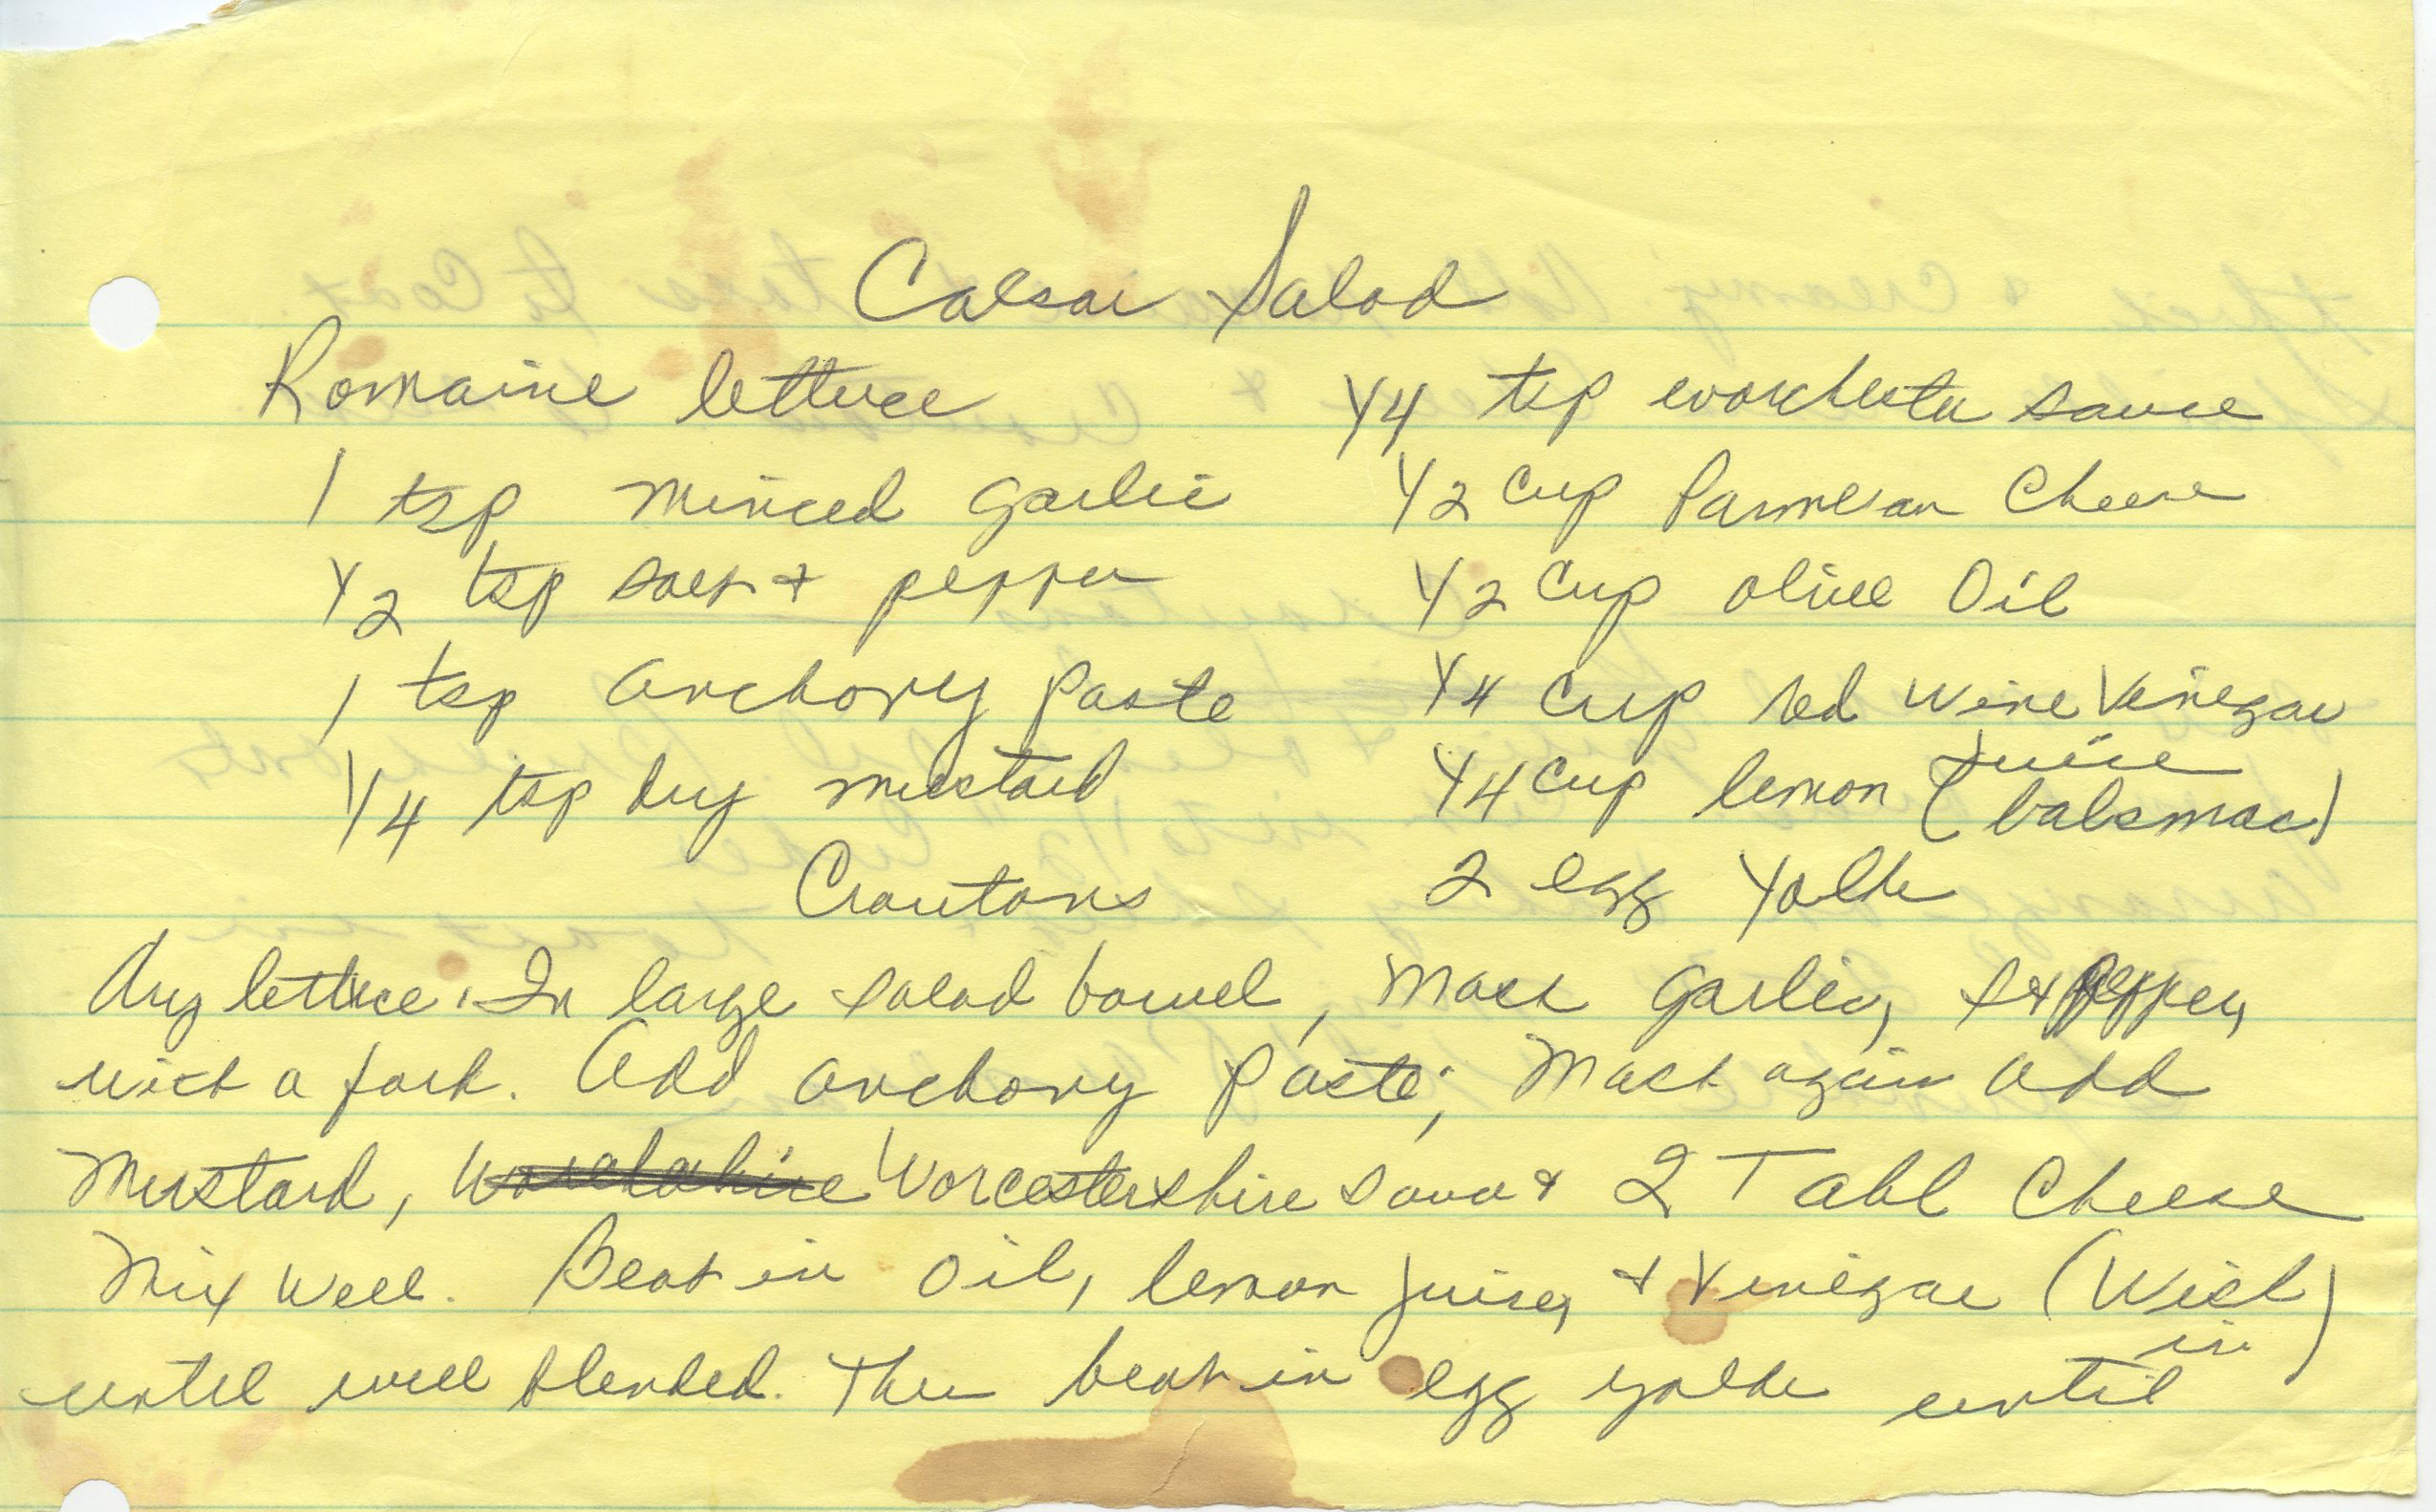 Caesar Salad
Romaine lettuce
1 tsp minced garlic
1/2 tsp salt + pepper
1 tsp anchovy paste
1/4 tsp dry mustard
Croutons
1/4 tsp worchester sauce
1/2 cup Parmesan Cheese
1/2 cup olive Oil
1/4 cup red wine Vinegar
1/4 cup lemon juice (balsmac)
2 egg Yolks
Dry lettuce. In large salad bowel, Mash garlic, s + pepper,
with a fork. Add anchovy paste; Mash again Add
Mustard, Worcestershire sauce + 2 Tabl Cheese
Mix Well. Beat in oil, lemon juice, + Vinegar (Wisk in)
until well blended. Then beat in egg yolks until